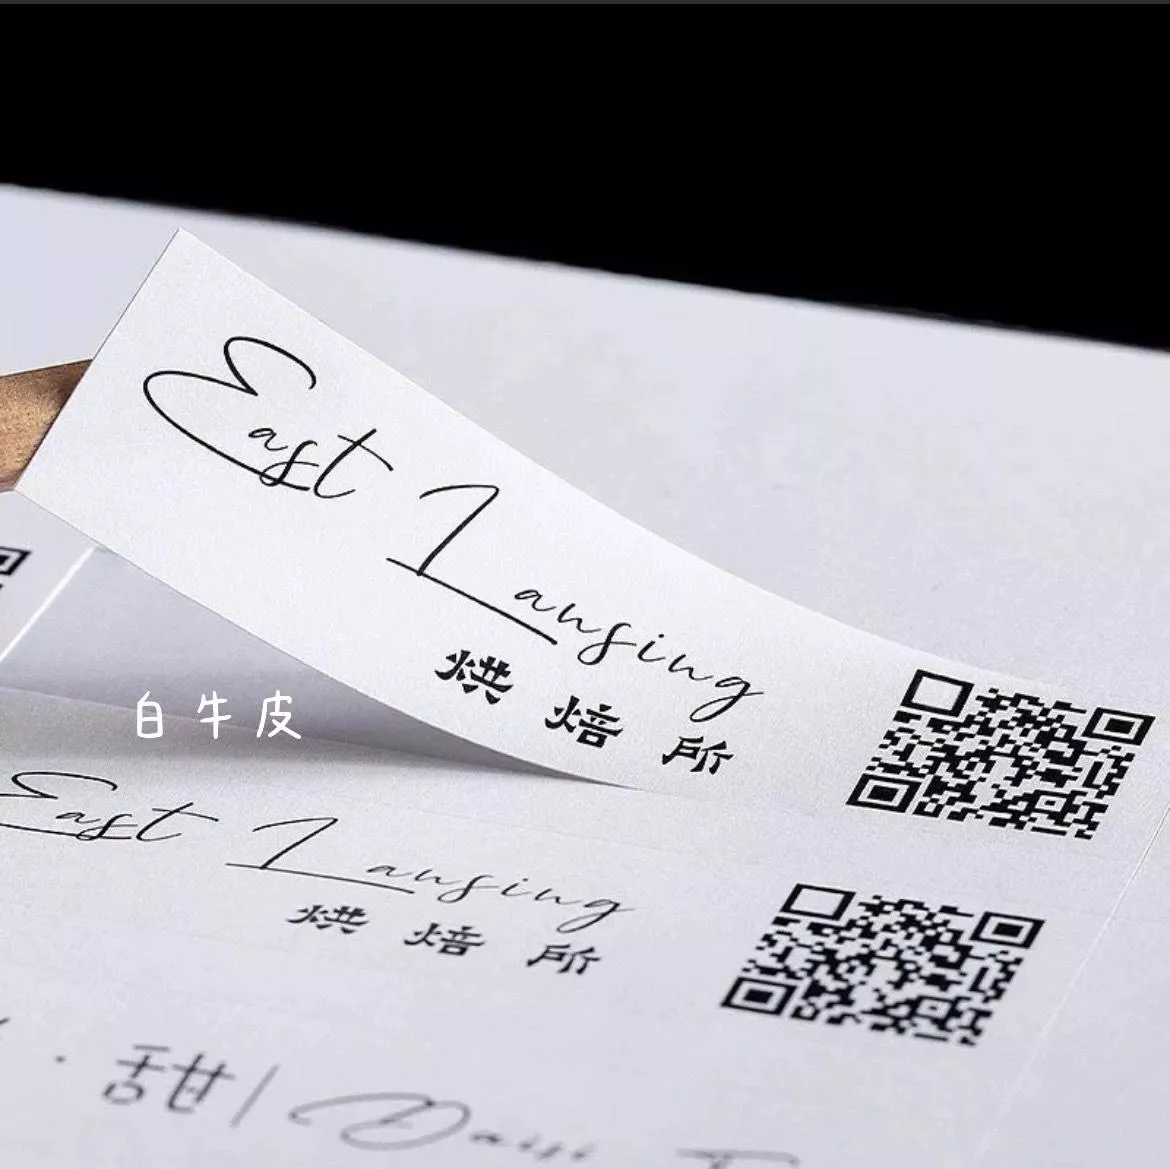 East Lansing
烘焙所
白牛皮
East Lansing
烘焙所
甜